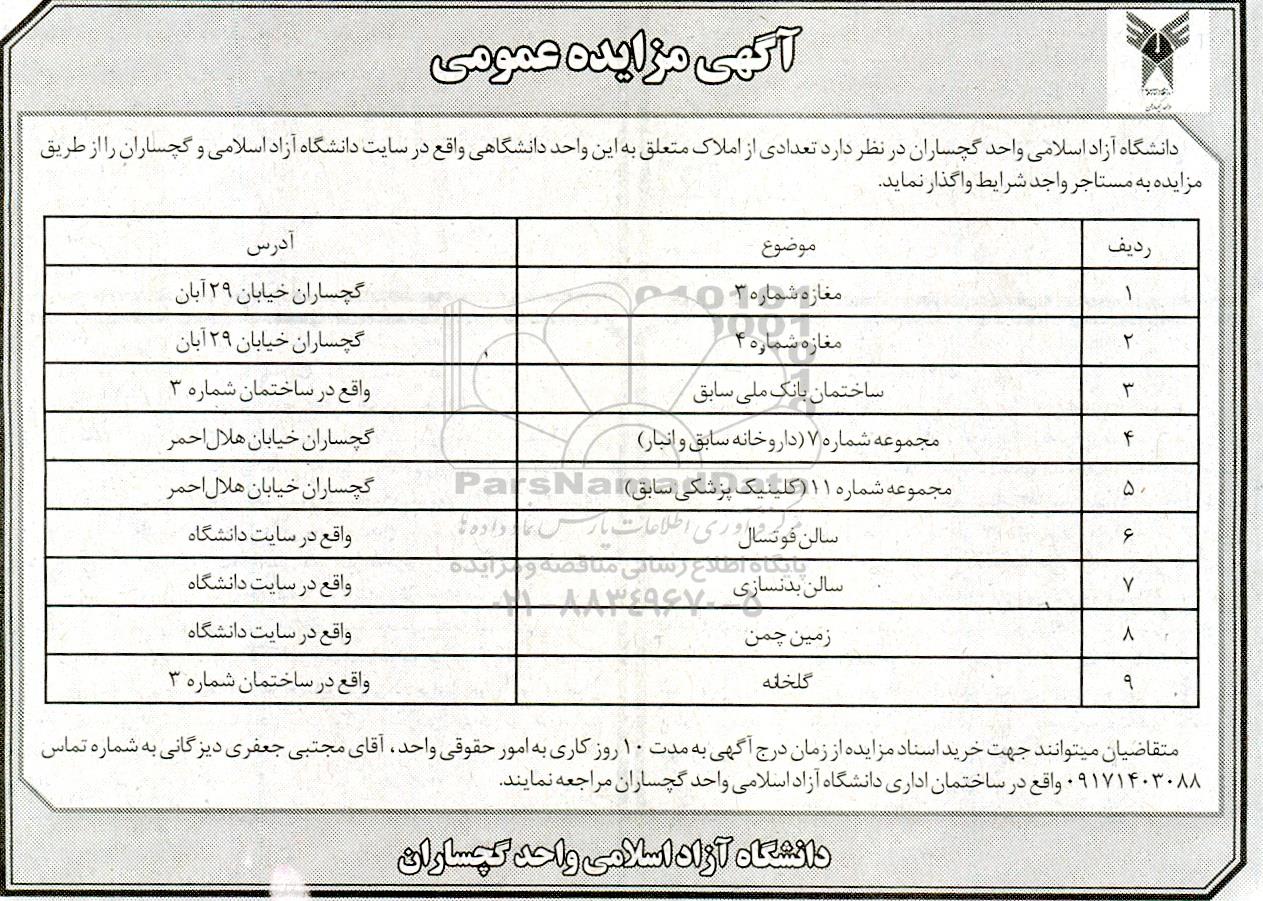 آگهی مزایده عمومی
دانشگاه آزاد اسلامی واحد گچساران در نظر دارد تعدادی از املاک متعلق به این واحد دانشگاهی واقع در سایت دانشگاه آزاد اسلامی و گچساران را از طریق
مزایده به مستاجر واجد شرایط واگذار نماید.
ردیف موضوع آدرس
۱ مغازه شماره ۳ گچساران خیابان ۲۹ آبان
۲ مغازه شماره ۴ گچساران خیابان ۲۹ آبان
۳ ساختمان بانک ملی سابق واقع در ساختمان شماره ۳
۴ مجموعه شماره ۷ (داروخانه سابق و انبار) گچساران خیابان هلال احمر
۵ مجموعه شماره ۱۱ (کلینیک پزشکی سابق) گچساران خیابان هلال احمر
۶ سالن فوتسال واقع در سایت دانشگاه
۷ سالن بدنسازی واقع در سایت دانشگاه
۸ زمین چمن واقع در سایت دانشگاه
۹ گلخانه واقع در ساختمان شماره ۳
ParsNamadData
مرکز فرآوری اطلاعات پارس نماد داده ها
پایگاه اطلاع رسانی مناقصه و مزایده
۰۲۱-۸۸۳۴۹۶۷۰-۵
متقاضیان میتوانند جهت خرید اسناد مزایده از زمان درج آگهی به مدت ۱۰ روز کاری به امور حقوقی واحد، آقای مجتبی جعفری دیزگانی به شماره تماس
۰۹۱۷۱۴۰۳۰۸۸ واقع در ساختمان اداری دانشگاه آزاد اسلامی واحد گچساران مراجعه نمایند.
دانشگاه آزاد اسلامی واحد گچساران